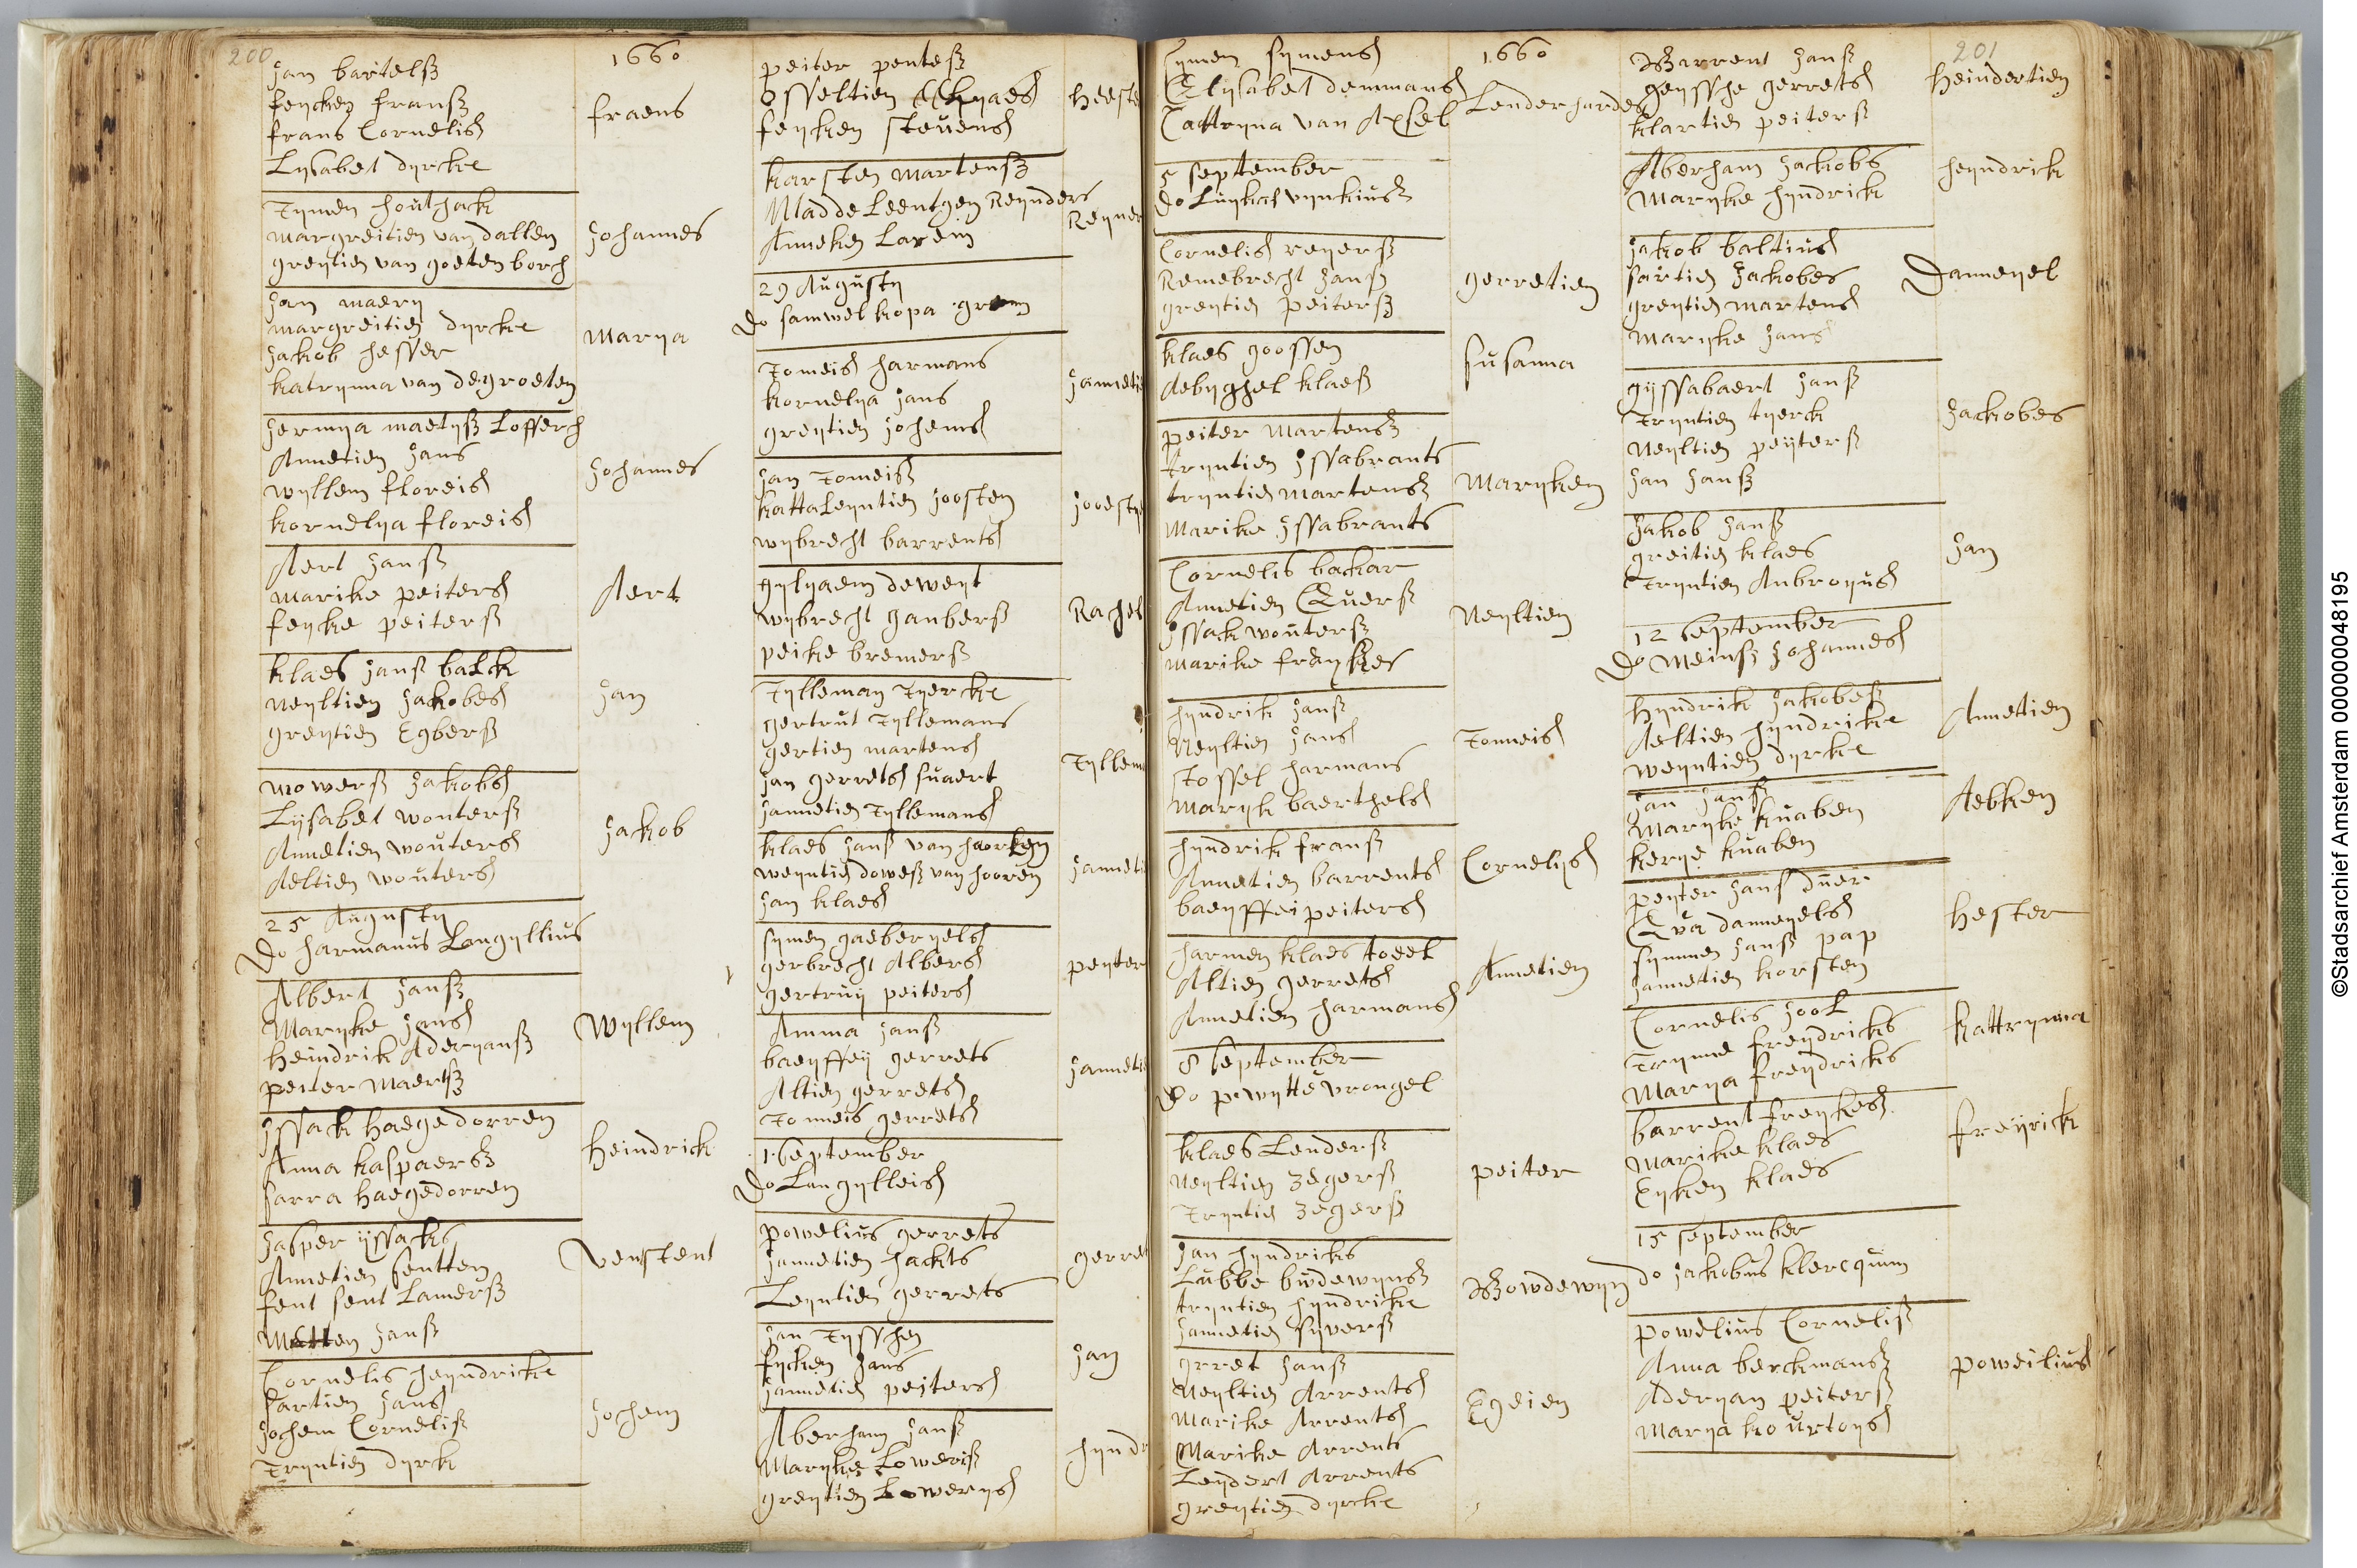 200
1660
Jan bartelsz
feycken fransz
frans Cornelisz
Lysabet dyrcke
fraens
Tymen houthack
margreitien van dallen
greytien van goeten borch
Johannes
Jan maery
margreitien dyrcke
Jakob hesser
katrynna van degroeten
Marya
Jermya maetysz Lofferch
Annetien Jans
wyllem floreis
kornelya floreis
Johannes
Aert Jansz
marike peiters
feyke peitersz
Aert
klaes Jansz balck
neyltien Jakobes
greytien Egbersz
Jan
mowersz Jakobs
Lysabet woutersz
Annetien wouters
Aeltien wouters
Jakob
25 Augusty
Do harmanus Langyllius
Albert Jansz
Maryke Jans
Heindrik Aderyansz
peiter Maertsz
Wyllem
yssack Haegedorren
Anna kaspaersz
sarra Haegedorren
Heindrick
Jasper yssacks
Annetien sentten
sent sent Lamersz
Metten Jansz
Venstent
Cornelis heyndricke
sartien Jans
Jochem Cornelisz
Tryntien dyrck
Jochem
peiter pentesz
feycken stevens
karsten martensz
Madde Leentgen Reynders
Anneken Larein
29 Augusty
Do samwel kopa
Tomeis harmans
kornelya Jans
greytien Jochems
Jan Tomeisz
kattaleyntien Joosten
wybrecht barrents
gylyaem deweyt
wybrecht ganbersz
peike bremersz
Rachel
Tylleman Tyercke
gertrut Tyllemans
gertien martens
Jan gerrets suaert
Jannetien Tyllemans
klaes Jansz van haorken
weyntien dowesz van hooren
Jan klaes
symen gaeberyels
gerbrecht Albers
gertruy peiters
peyter
Anna Jansz
baeyffey gerrets
Altien gerrets
Tonneis gerrets
1 September
Do Langylleis
powelius gerrets
Jannetien hackts
Leyntien gerrets
Jan Tysschen
fycken Jans
Jannetien peiters
Jan
Aberham Jansz
Maryke Lowerisz
greytien Lowerys
201
1660
symen symens
Elysabet demmans
Cattryna van Axsel
Lenderhardes
5 september
Do Luykas vynkiusz
Cornelis reyersz
Remebrecht Jansz
greytien peitersz
gerretien
klaes goossen
Aebyghel klaesz
susanna
peiter Martensz
tryntien yssabrants
tryntien martensz
Marike yssabrants
Maryken
Cornelis backar
Annetien Quersz
yssack woutersz
marike freyckes
Neyltien
hyndrik Jansz
Neyltien Jans
stoffel harmans
Maryk baerthels
Tonneis
hyndrik fransz
Annetien barrents
baeyffei peiters
Cornelys
harmen klaes toeel
Altien gerrets
Annetien harmans
Annetien
8 September
Do pewytte vrongel
klaes Lendersz
Neyltien zegersz
Tryntien zegersz
peiter
Jan hyndricks
Lubbe budewynsz
tryntien hyndricke
Jannetien syversz
Bowdewyn
grret Jansz
Neyltien Arrents
Marike Arrents
Maricke Arrents
Leydert Arrents
greytien dyrcke
Egeien
Barrent Jansz
geyssche gerrets
klartien peitersz
Heindertien
Aberham Jackobs
Maryke hyndrick
heyndrick
Jakob baltius
sartien Jackobes
greytien martens
Maryke Jans
Danneyel
gyssabaert Jansz
Tryntien tyerck
Neyltien peytersz
Jan Jansz
Jackobes
Jakob Jansz
greitien klaes
Tryntien Anbroyus
Jan
12 September
Do Meinsz Johannes
Hyndrik Jakobesz
Aeltien hyndricke
weyntien dyrcke
Annetien
Jan Jansz
Maryke knaben
kerye knaben
Aebken
peyter Jans duer
Eva danneyels
symmen Jansz pap
Jannetien korsten
Hester
Cornelis Jool
Trynne freydricks
Marya freydricks
kattrynna
barrent freyckes
Marike klaes
Eyken klaes
freyrick
15 September
do Jakobus klercquim
powelius Cornelisz
Anna berckmansz
Aderyan peitersz
Marya kourtoys
poweilius
©Stadsarchief Amsterdam 000000048195